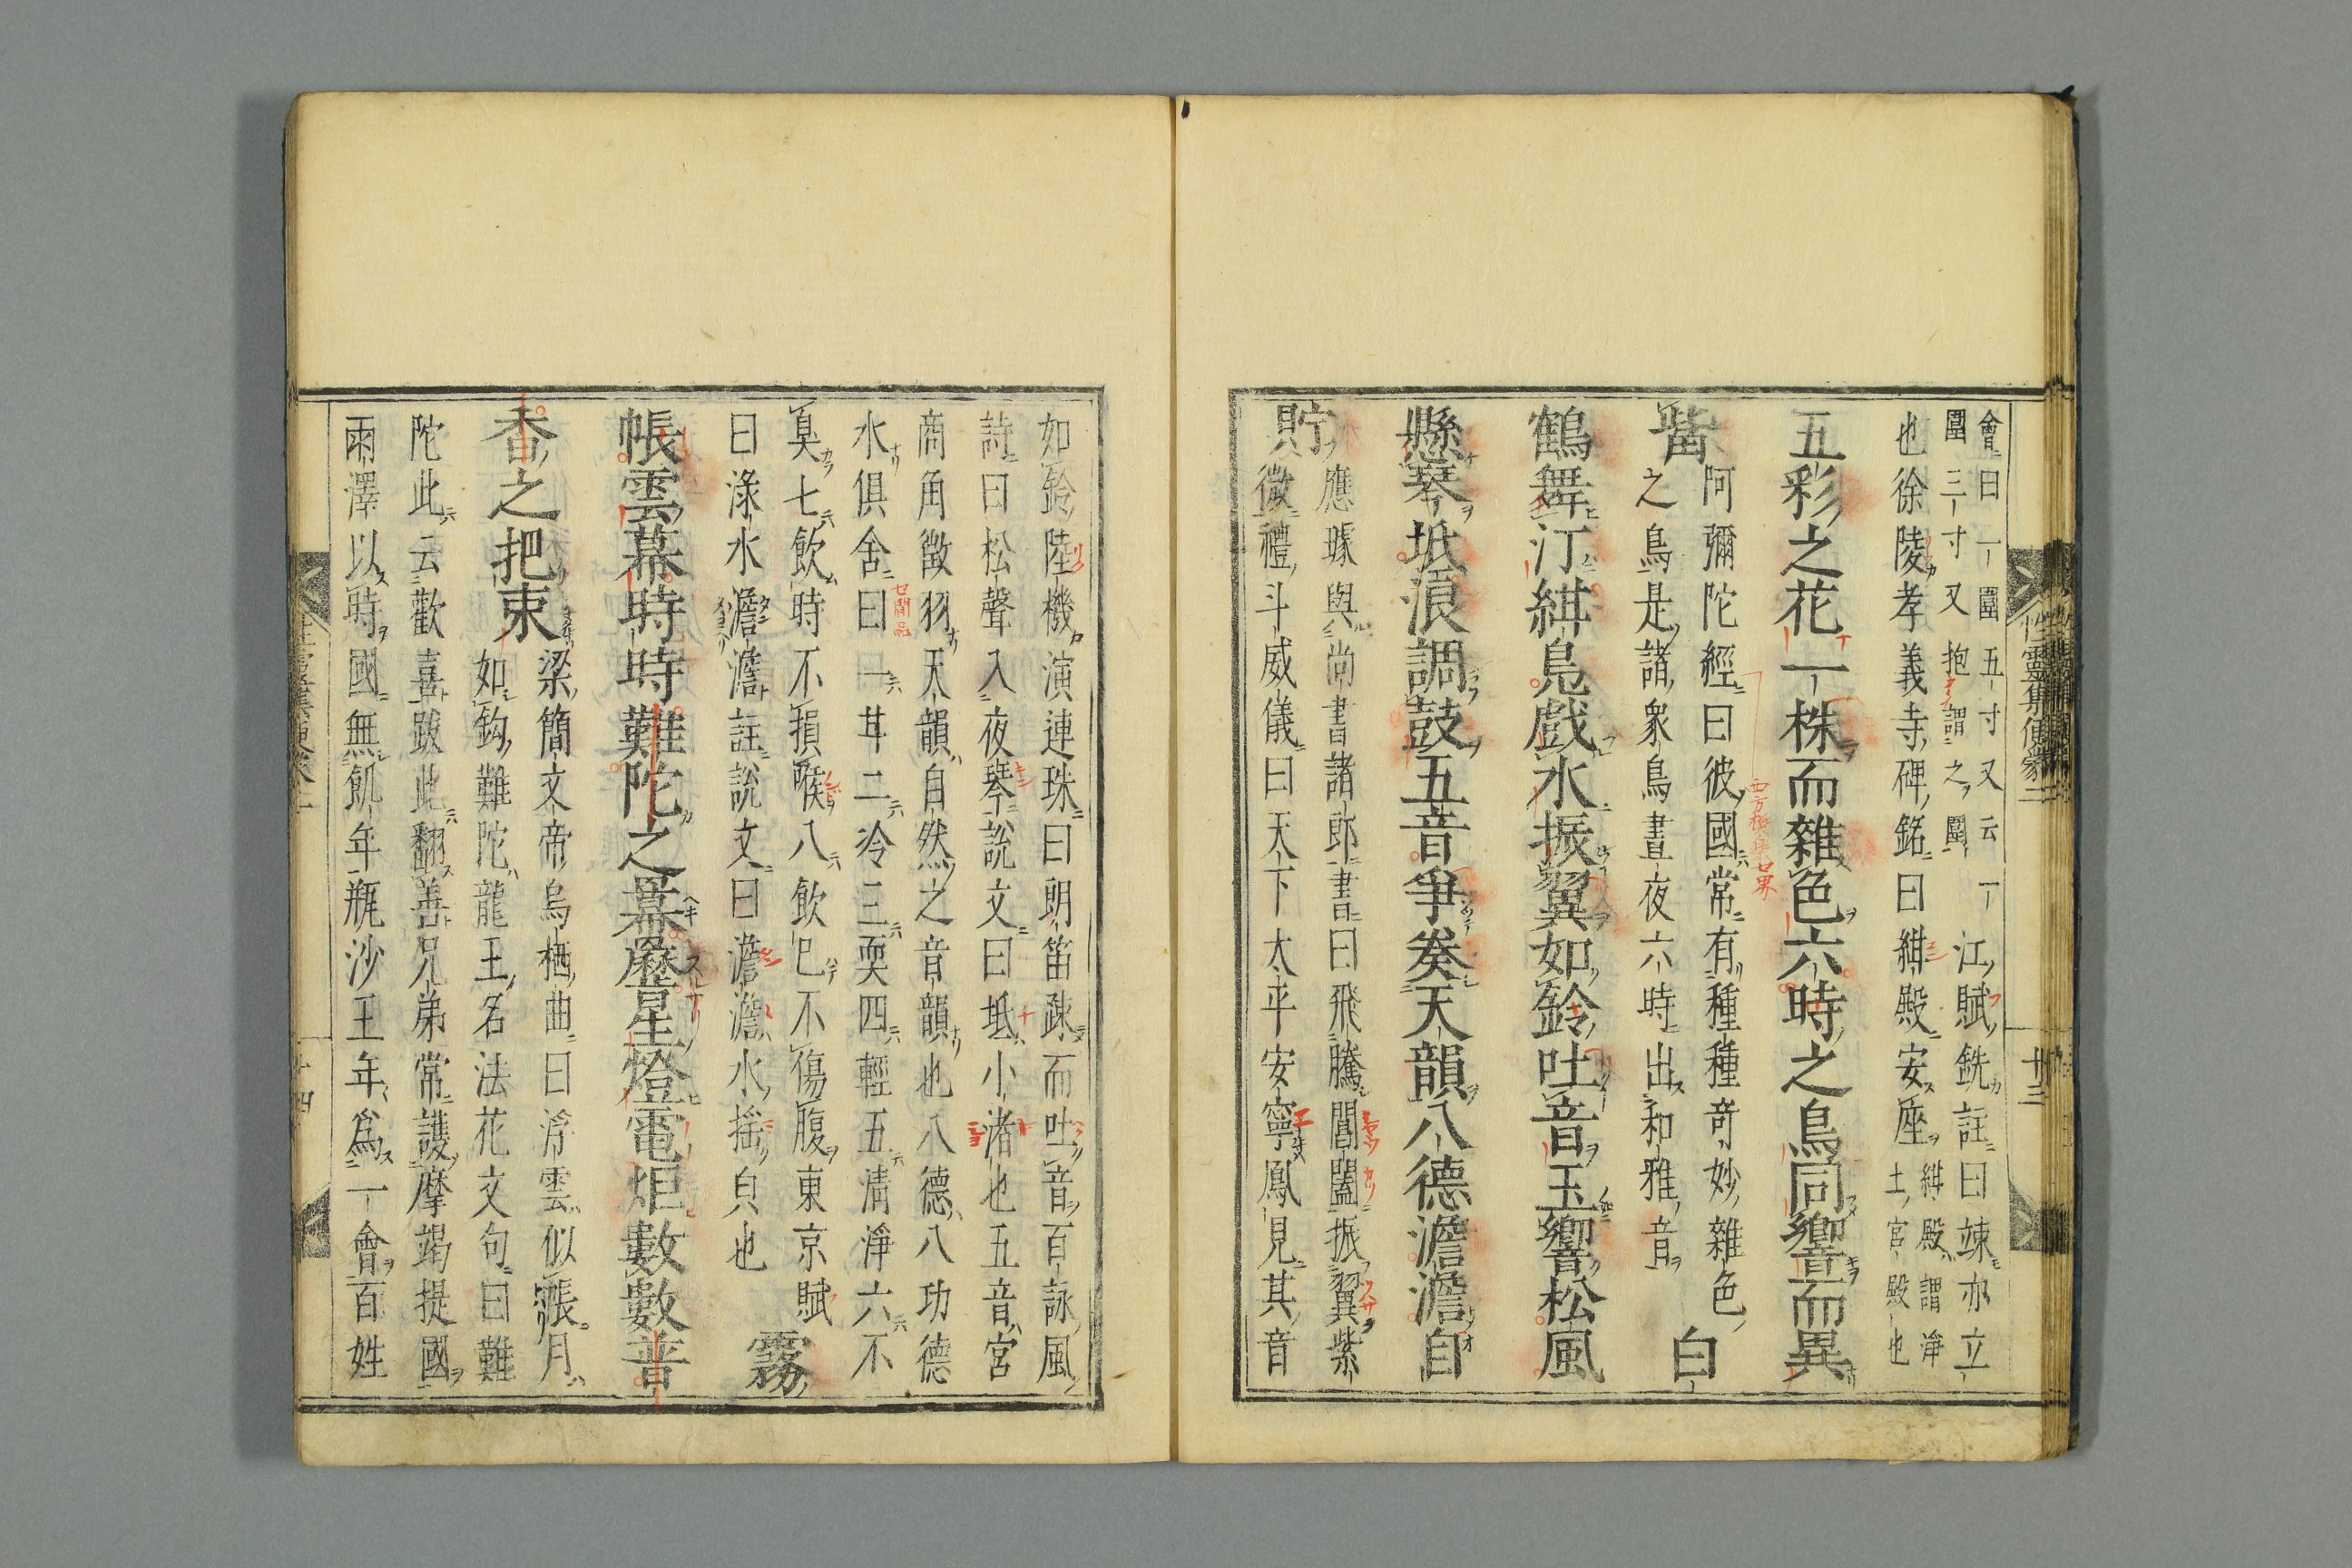 會曰一圍五寸又云一
圍三寸又抱謂之圍
江賦銑註曰竦亦立
也徐陵孝義寺碑銘曰紺殿安座
紺殿謂淨
土宮殿也
五彩之花一株而雜色六時之鳥同響而異
觜
阿彌陀經曰彼國常有種種奇妙雜色
之鳥是諸衆鳥晝夜六時出和雅音
白
鶴舞汀紺鳬戯水振翼如鈴吐音玉響松風
懸琴坻浪調鼓五音爭奏天韻八德澹澹自
貯
應璩與尚書諸郎書曰飛騰閶闔振翼紫
微禮斗威儀曰天下太平安寧鳳見其音
性靈集便蒙二
廿三
如鈴陸機演連珠曰朗笛疎而吐音百詠風
詩曰松聲入夜琴說文曰坻小渚也五音宮
商角徵羽天韻自然之音韻也八德八功德
水俱舍曰一甘二冷三耎四輕五清淨六不
臭七飲時不損喉八飲已不傷腹東京賦
曰淥水澹澹註說文曰澹澹水搖皃也
霧
帳雲幕時時難陀之冪䍥星燈電炬數數普
香之把束
梁簡文帝烏栖曲曰浮雲似帳月
如鈎難陀龍王名法花文句曰難
陀此云歡喜跋此翻善兄弟常護摩竭提國
雨澤以時國無飢年瓶沙王年爲一會百姓